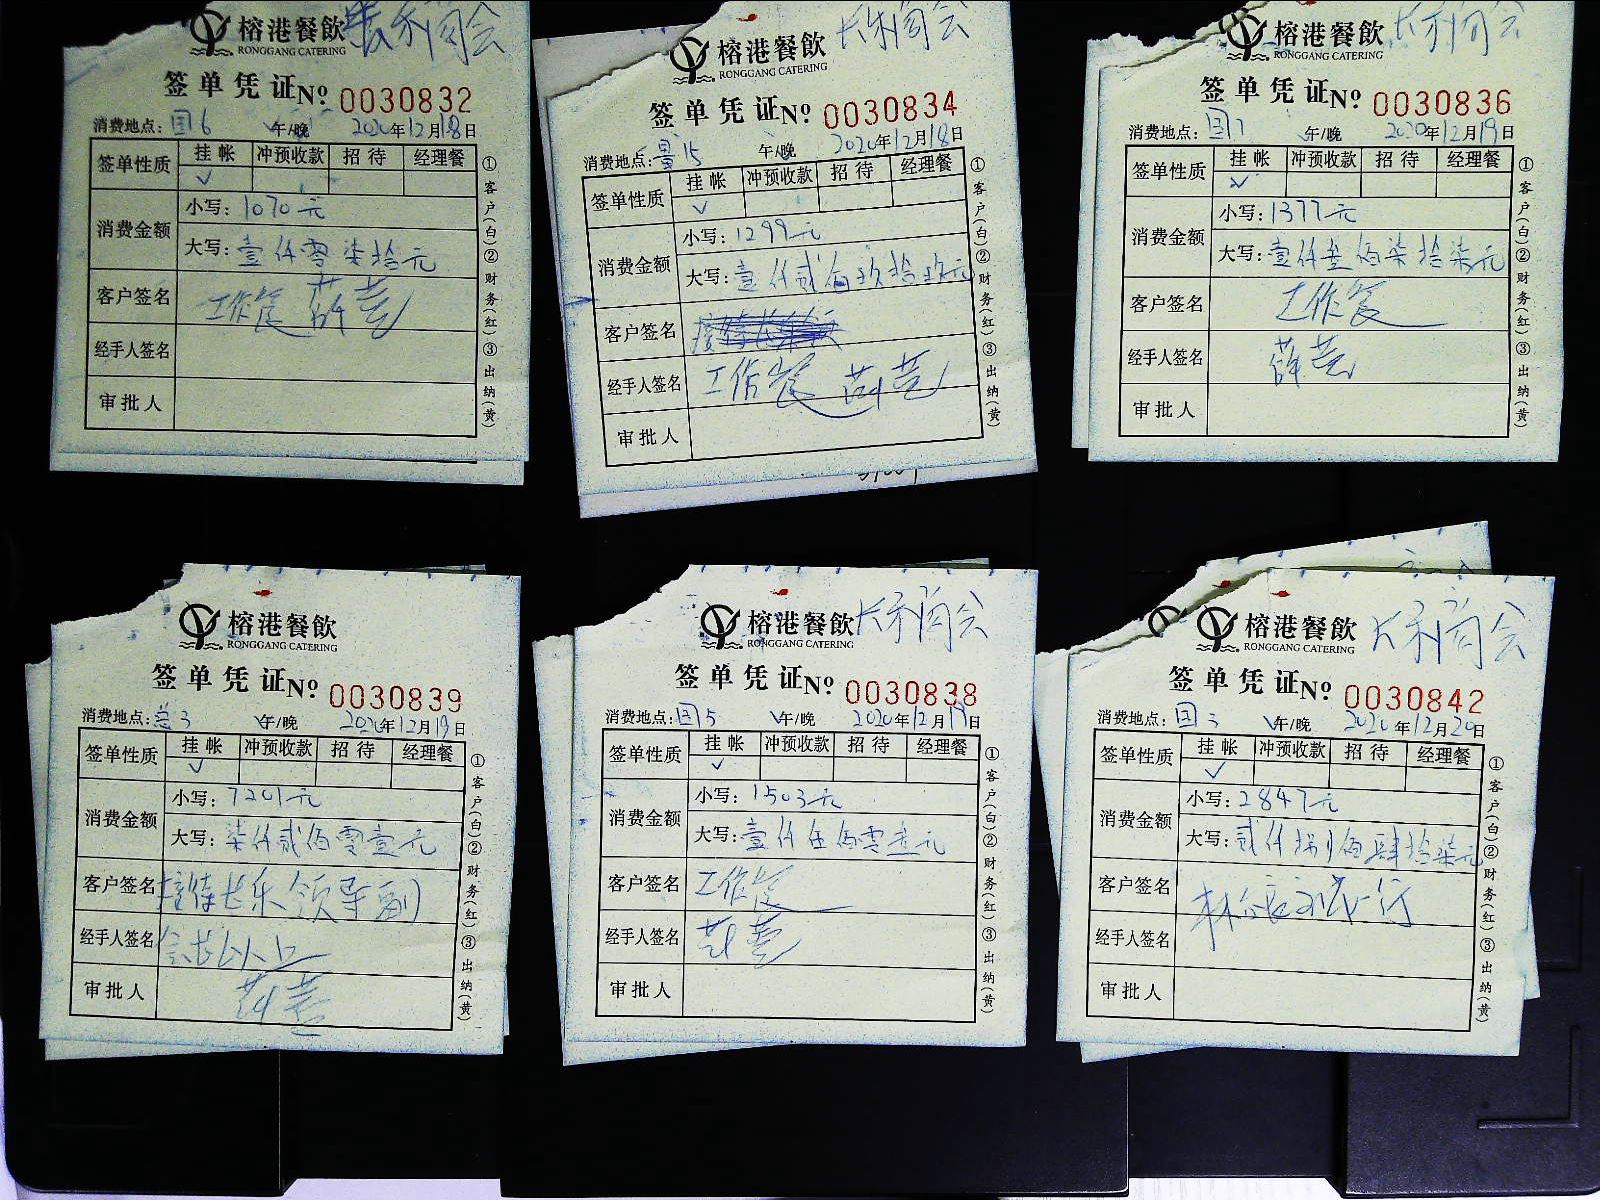 榕港餐飲 长乐商会
RONGGANG CATERING
签单凭证 Nº 0030832
消费地点: 国6 午/晚 2020年12月18日
签单性质 挂帐 冲预收款 招待 经理餐
✓
消费金额 小写: 1070元
大写: 壹仟零柒拾元
客户签名 工作餐 薛
经手人签名
审批人
①客户(白)②财务(红)③出纳(黄)
榕港餐飲 长乐商会
RONGGANG CATERING
签单凭证 Nº 0030834
消费地点: 15 午/晚 2020年12月18日
签单性质 挂帐 冲预收款 招待 经理餐
✓
消费金额 小写: 1299元
大写: 壹仟贰佰玖拾玖元
客户签名
经手人签名 工作餐
审批人
①客户(白)②财务(红)③出纳(黄)
榕港餐飲 长乐商会
RONGGANG CATERING
签单凭证 Nº 0030836
消费地点: 国7 午/晚 2020年12月19日
签单性质 挂帐 冲预收款 招待 经理餐
✓
消费金额 小写: 1377元
大写: 壹仟叁佰柒拾柒元
客户签名 工作餐
经手人签名 薛
审批人
①客户(白)②财务(红)③出纳(黄)
榕港餐飲
RONGGANG CATERING
签单凭证 Nº 0030839
消费地点: 3 午/晚 2020年12月19日
签单性质 挂帐 冲预收款 招待 经理餐
✓
消费金额 小写: 7201元
大写: 柒仟贰佰零壹元
客户签名 接待长乐领导副
经手人签名 会长以上
审批人
①客户(白)②财务(红)③出纳(黄)
榕港餐飲 长乐商会
RONGGANG CATERING
签单凭证 Nº 0030838
消费地点: 国5 午/晚 2020年12月19日
签单性质 挂帐 冲预收款 招待 经理餐
✓
消费金额 小写: 1503元
大写: 壹仟伍佰零叁元
客户签名 工作餐
经手人签名
审批人
①客户(白)②财务(红)③出纳(黄)
榕港餐飲 长乐商会
RONGGANG CATERING
签单凭证 Nº 0030842
消费地点: 国3 午/晚 2020年12月20日
签单性质 挂帐 冲预收款 招待 经理餐
✓
消费金额 小写: 2847元
大写: 贰仟捌佰肆拾柒元
客户签名
经手人签名
审批人
①客户(白)②财务(红)③出纳(黄)